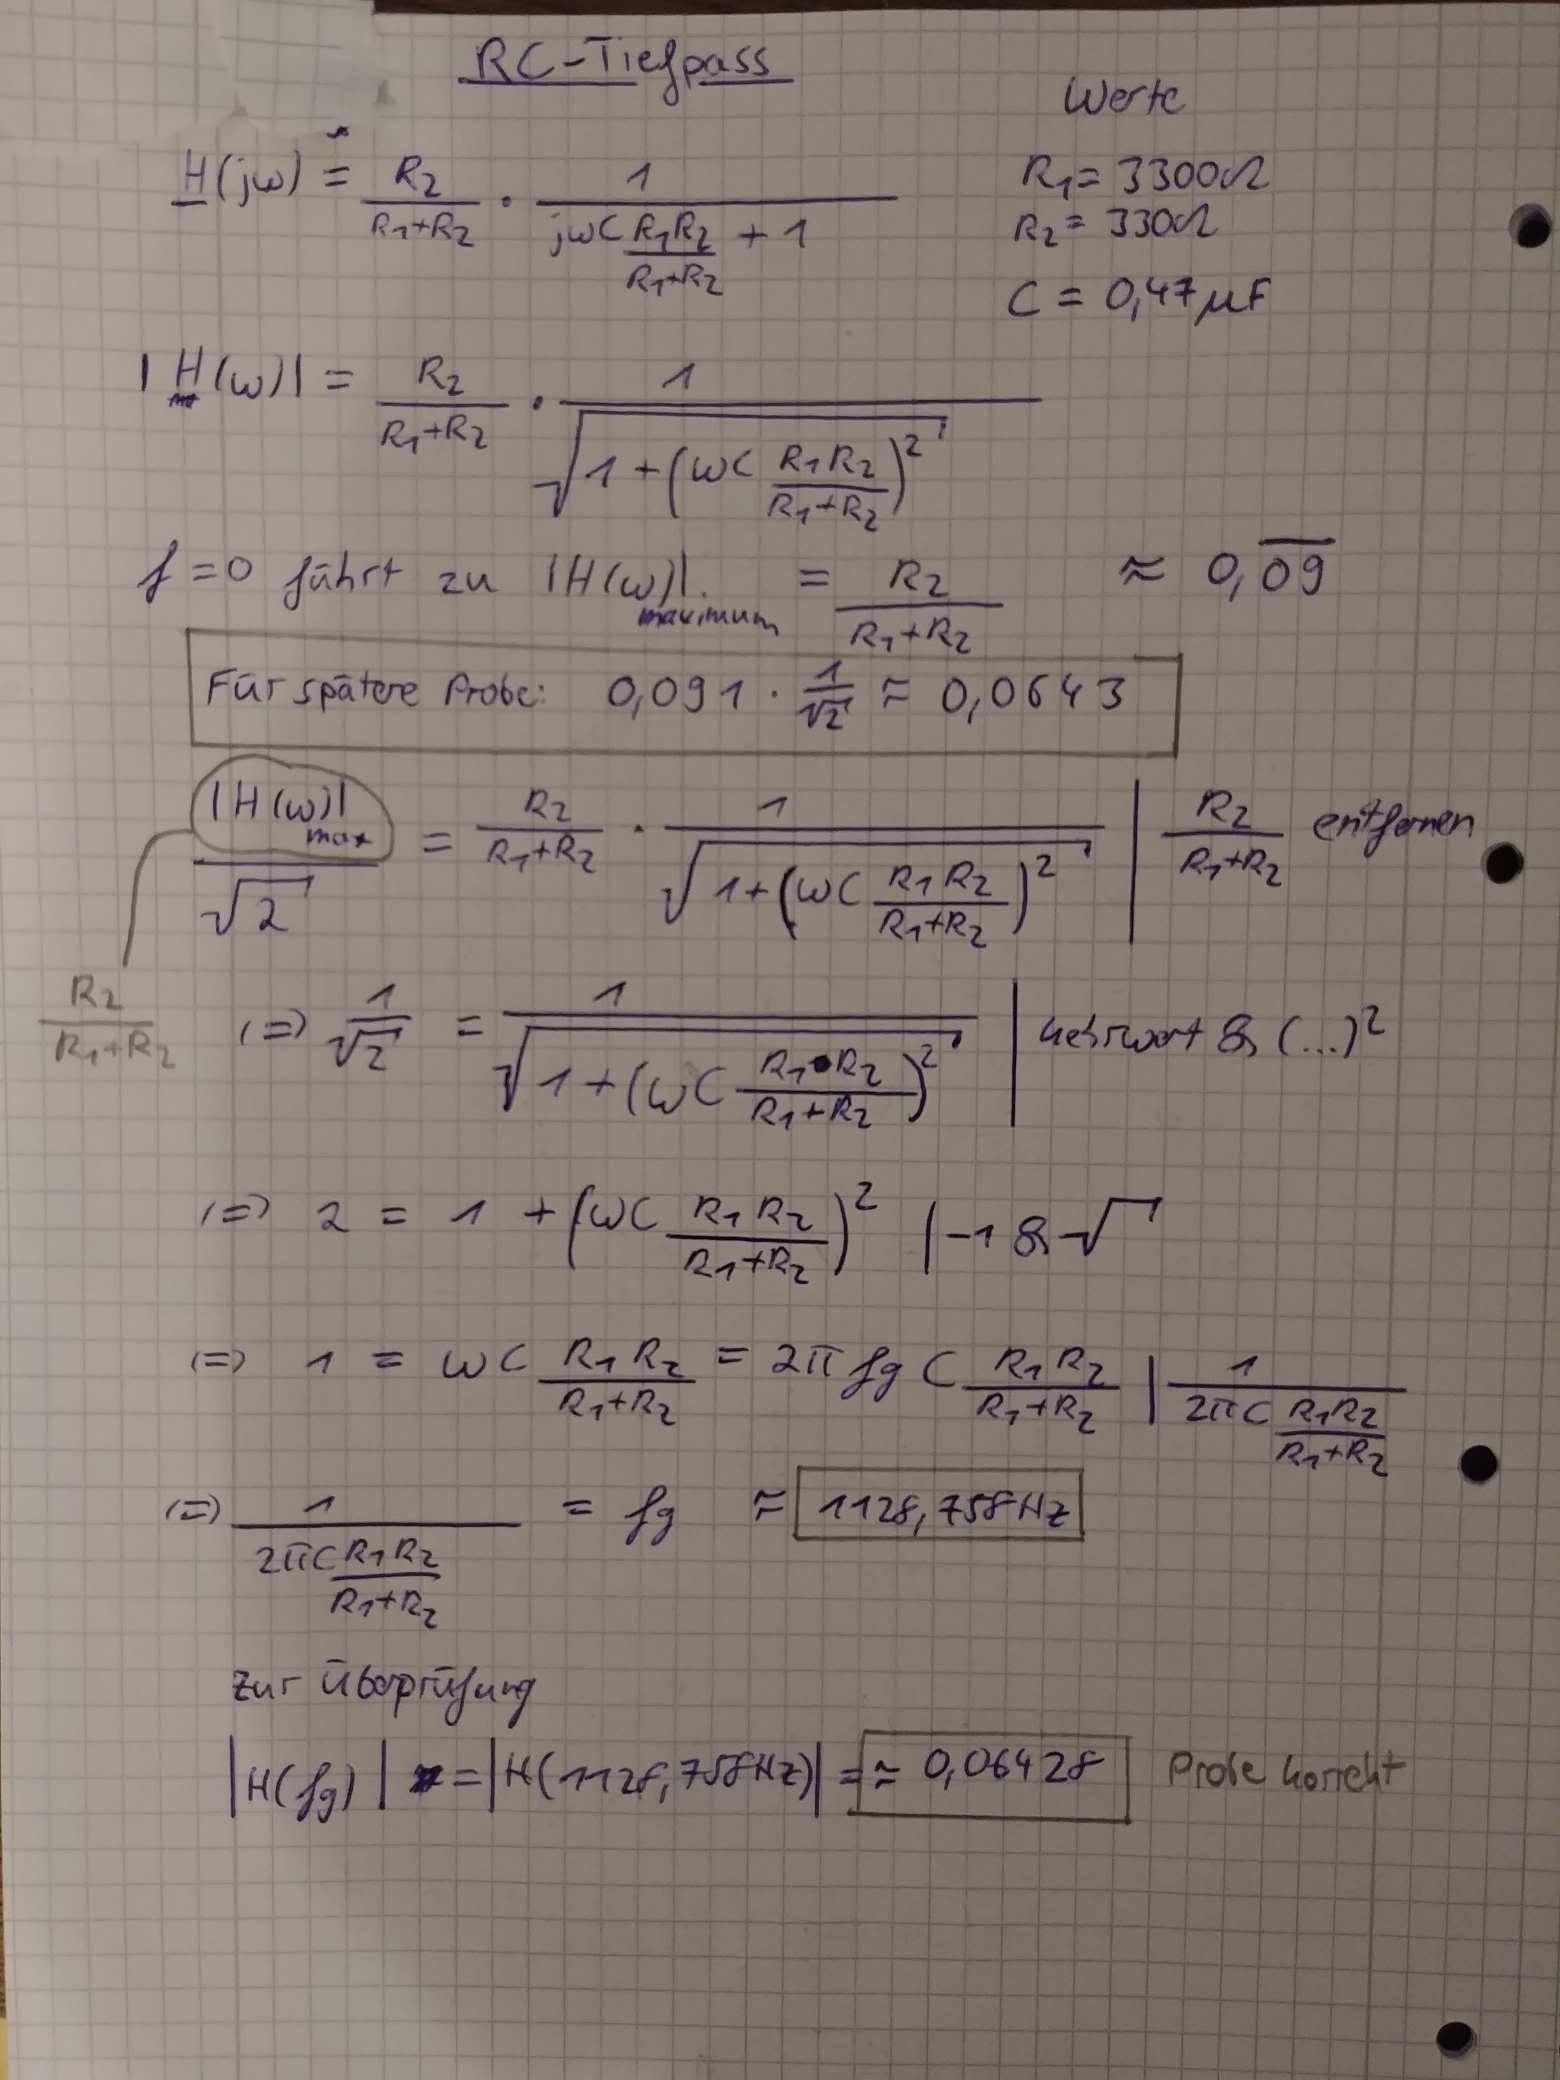 RC-Tiefpass
Werte
H(jω) = R₂/(R₁+R₂) · 1/(jωC (R₁R₂)/(R₁+R₂) + 1)
R₁ = 3300Ω
R₂ = 330Ω
C = 0,47µF
|H(ω)| = R₂/(R₁+R₂) · 1/√(1+(ωC (R₁R₂)/(R₁+R₂))²)
f = 0 führt zu |H(ω)|maximum = R₂/(R₁+R₂) ≈ 0,0̅9̅
Für spätere Probe: 0,091 · 1/√2 ≈ 0,0643
|H(ω)|max/√2 = R₂/(R₁+R₂) · 1/√(1+(ωC (R₁R₂)/(R₁+R₂))²) | R₂/(R₁+R₂) entfernen
R₂/(R₁+R₂)
(=) 1/√2 = 1/√(1+(ωC (R₁·R₂)/(R₁+R₂))²) | Kehrwert & (...)²
(=) 2 = 1 + (ωC (R₁R₂)/(R₁+R₂))² | -1 & √
(=) 1 = ωC (R₁R₂)/(R₁+R₂) = 2π fg C (R₁R₂)/(R₁+R₂) | 1/(2πC (R₁R₂)/(R₁+R₂))
(=) 1/(2πC (R₁R₂)/(R₁+R₂)) = fg ≈ 1128,758Hz
Zur Überprüfung
|H(fg)| = |H(1128,758Hz)| = ≈ 0,06428 Probe korrekt